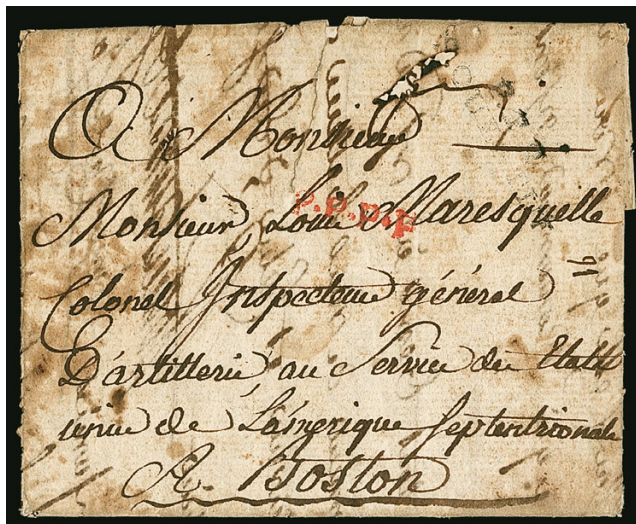 A Monsieur
Monsieur Louis Maresquelle
P.P.P.P.
Colonel Inspecteur général
16
D'artillerie au Service des Etats
unie de L'amerique Septentrionale
A Boston